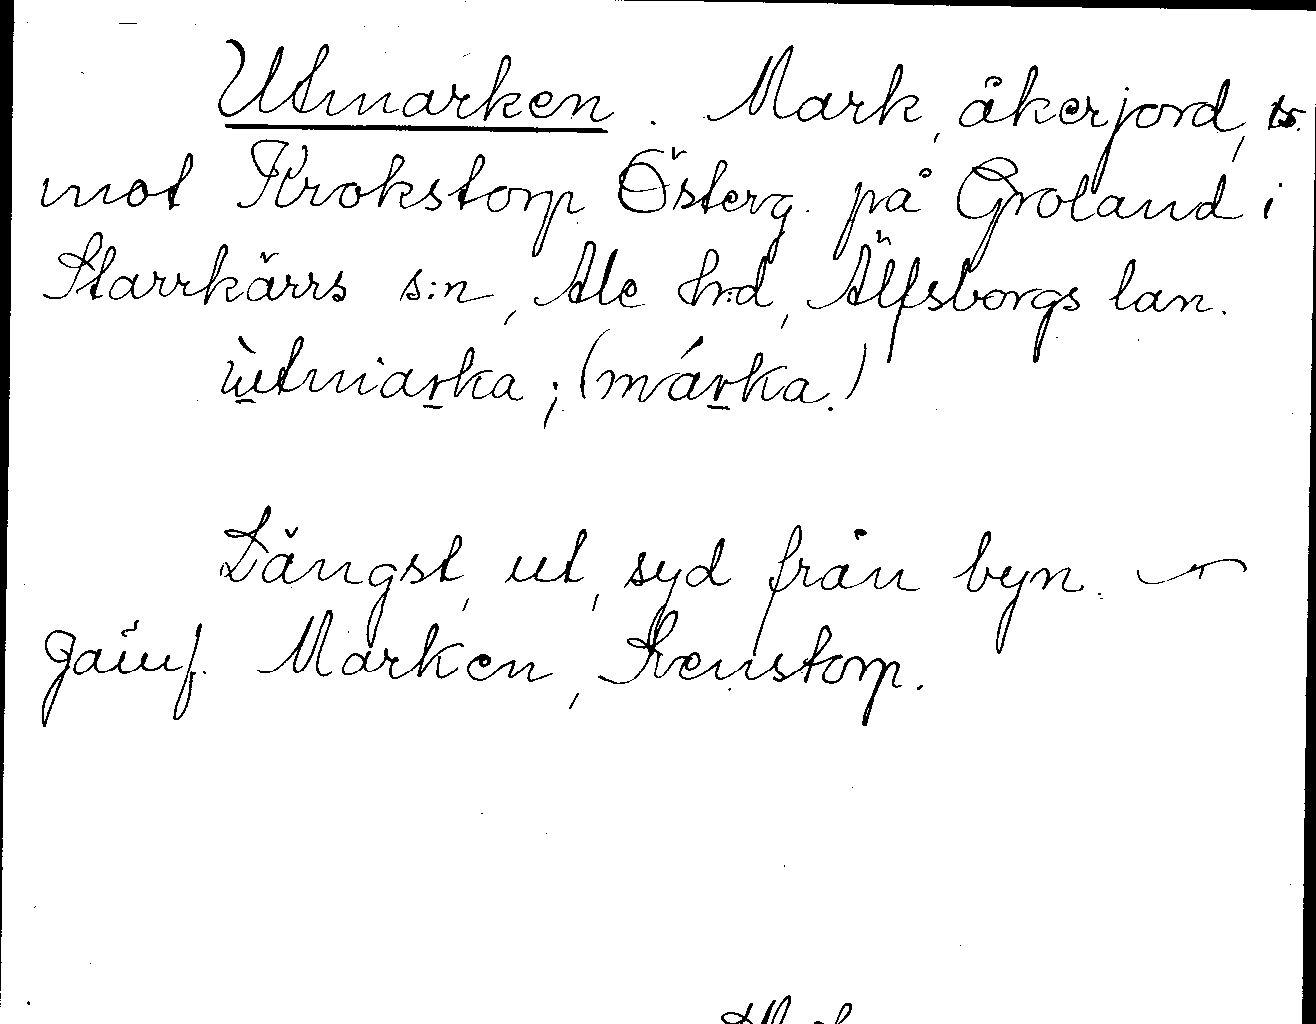 Utmarken. Mark, åkerjord, ts.
mot Krokstorp Österg. på Groland i
Starrkärrs s:n, Ale hrd, Älfsborgs lan.
ùtmarka; (márka.)
Längst, ut, syd från byn.
Jämf. Marken, Svenstorp.